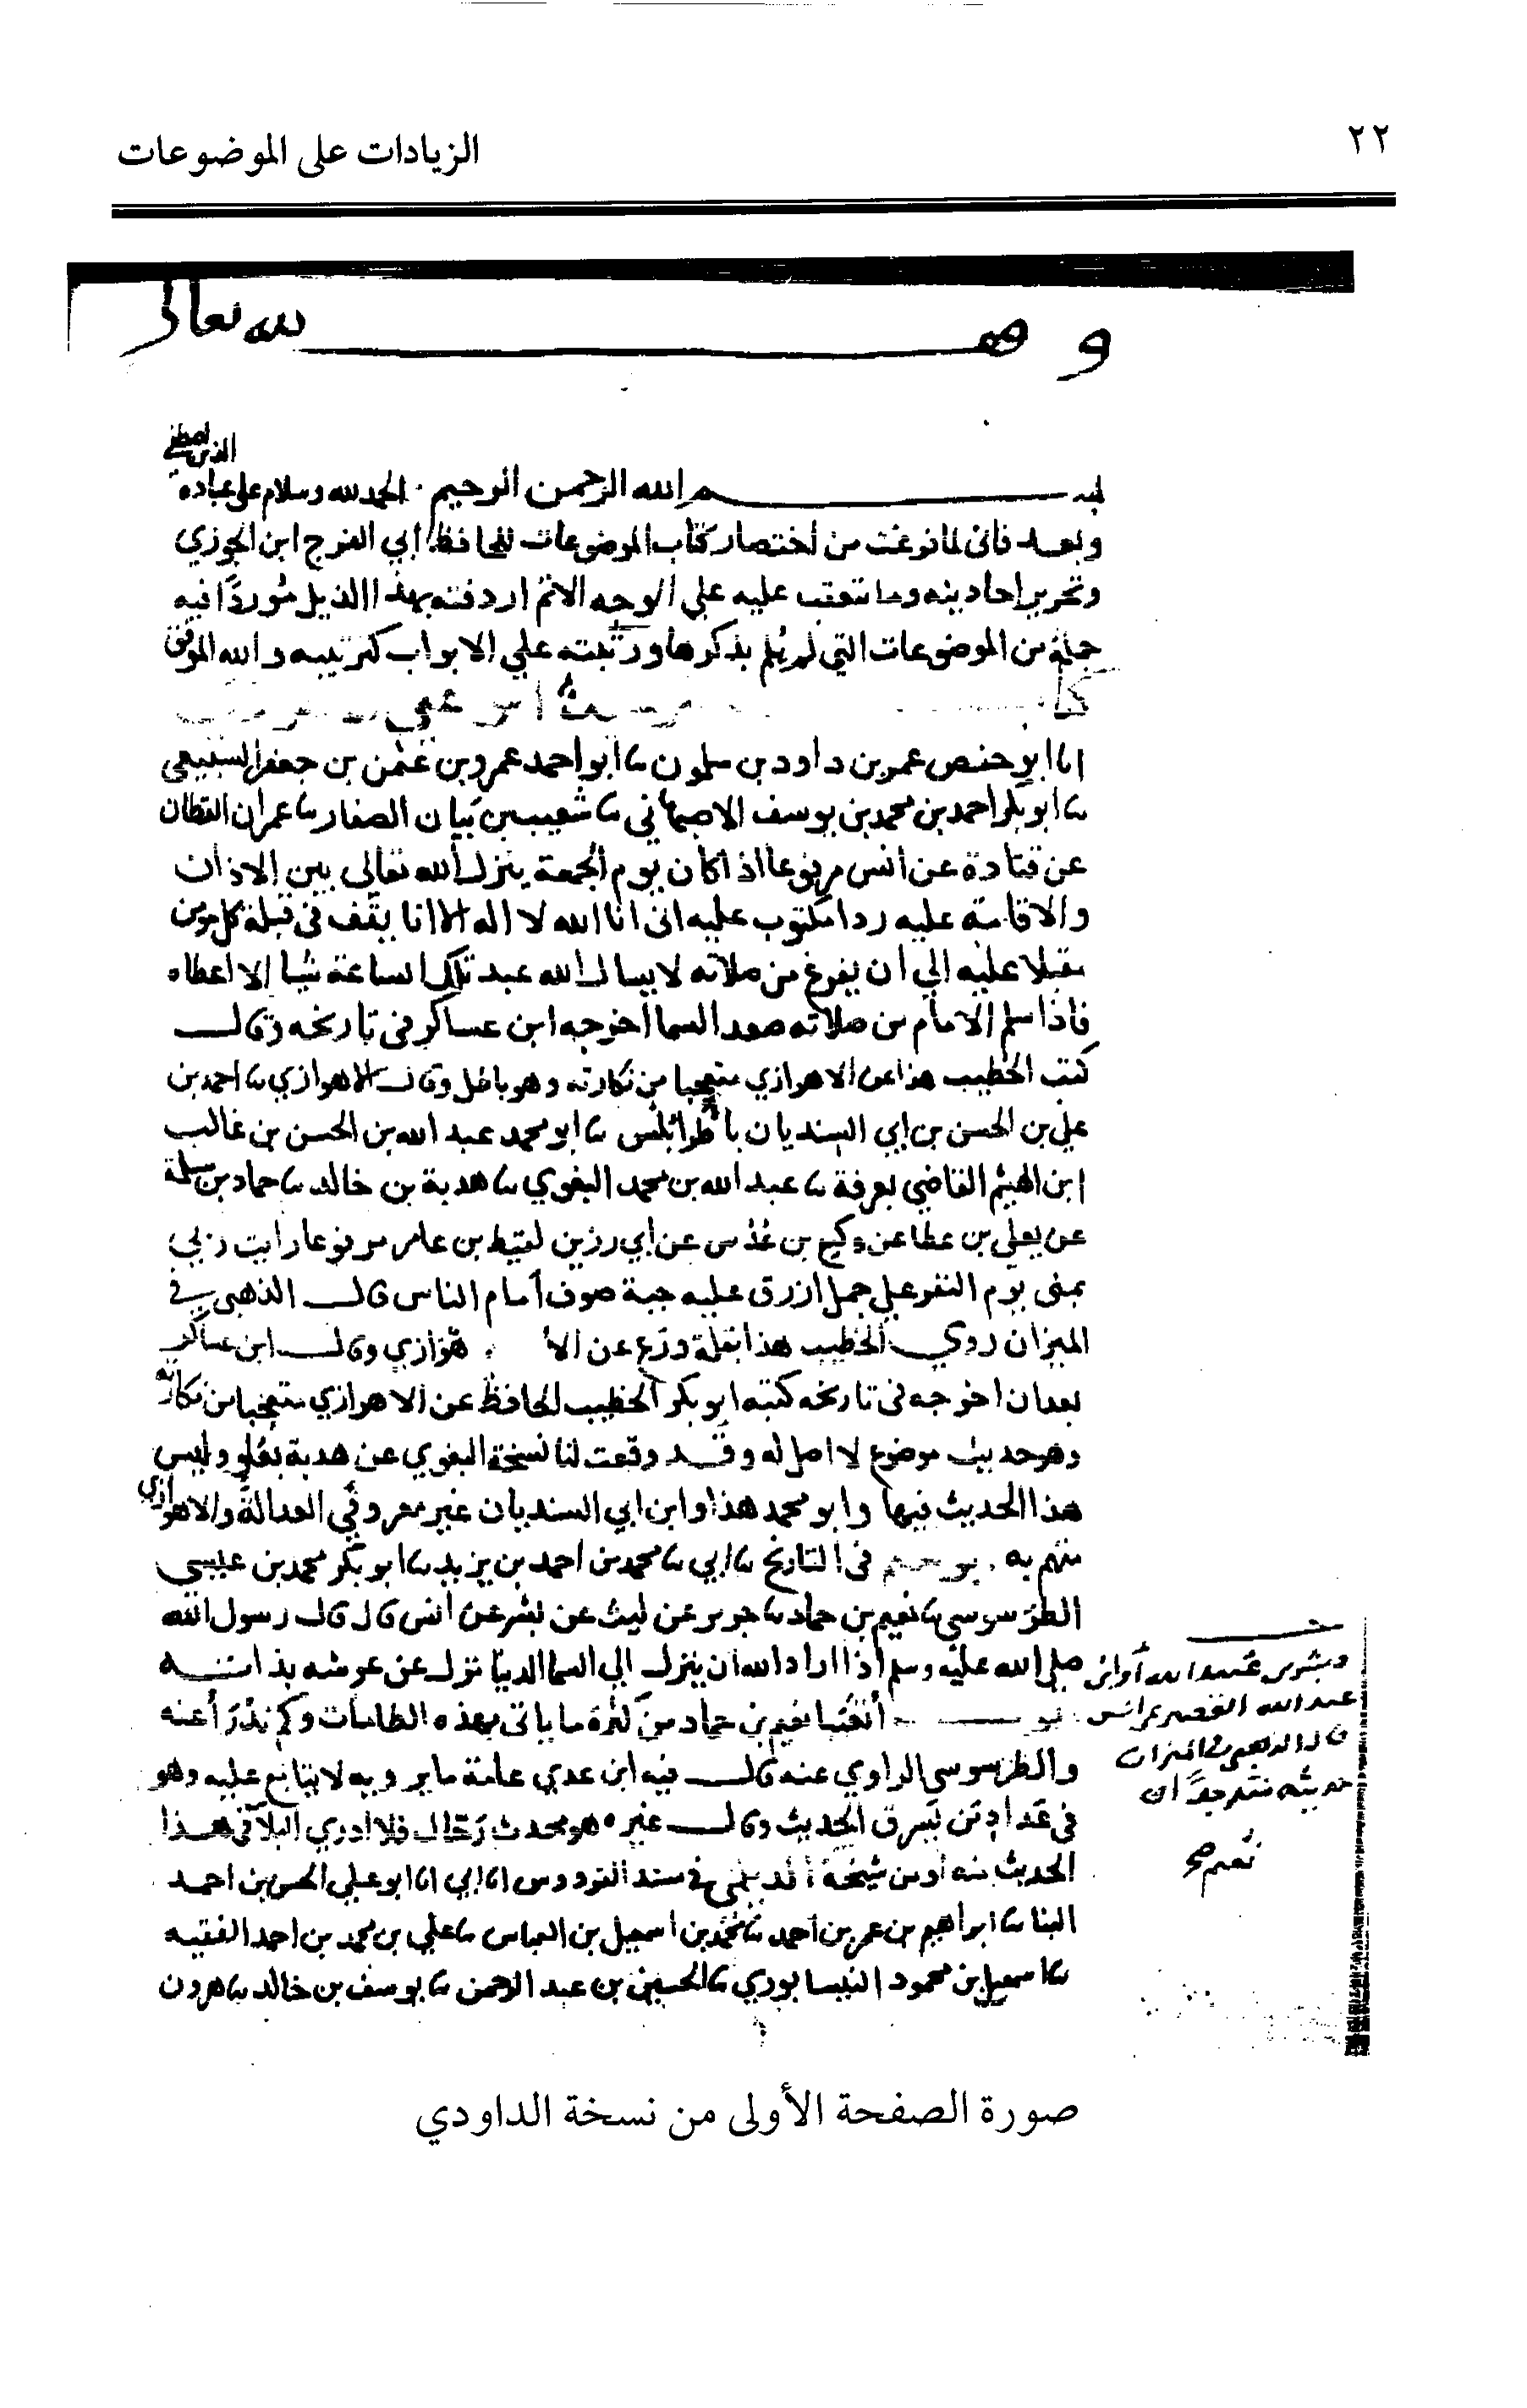 ٢٢
الزيادات على الموضوعات
وقف لله تعالى
بسم الله الرحمن الرحيم الحمد لله وسلام على عباده الذين اصطفى
وبعد فاني لما فرغت من اختصار كتاب الموضوعات للحافظ ابي الفرج ابن الجوزي
وتحرير احاديثه وما تتعقب عليه علي الوجه الاتم اردفته بهذا الذيل مُوردًا فيه
جملة من الموضوعات التي لم يُلم بذكرها ورتبته علي الابواب كترتيبه والله الموفق
انا ابو حفص عمر بن داود بن سلمون ثنا ابو احمد عمرو بن عثمن بن جعفر السبيعي
ثنا ابو بكر احمد بن محمد بن يوسف الاصبهاني ثنا شعيب بن بيان الصفار ثنا عمران القطان
عن قتادة عن انس مرفوعا اذا كان يوم الجمعة ينزل الله تعالى بين الاذان
والاقامة عليه ردا مكتوب عليه اني انا الله لا اله الا انا يقف في قبلة كل مومن
مقبلا عليه الي ان يفرغ من صلاته لا يسال الله عبد تلك الساعة شيا الا اعطاه
فاذا سلم الامام من صلاته صعد السما اخرجه ابن عساكر في تاريخه وقال
كتب الخطيب هذا عن الاهوازي متعجبا من نكارته وهو باطل وقال الاهوازي ثنا احمد بن
علي بن الحسن بن ابي السنديان باطرابلس ثنا ابو محمد عبد الله بن الحسن بن غالب
ابن الهيثم القاضي بعرفة ثنا عبد الله بن محمد البغوي ثنا هدبة بن خالد ثنا حماد بن سلمة
عن يعلي بن عطا عن وكيع بن عُدُس عن ابي رزين لقيط بن عامر مرفوعا رايت ربي
بمنى يوم النفر علي جمل ازرق عليه جبة صوف أمام الناس قال الذهبي في
الميزان روي الخطيب هذا بقلة ورَع عن الاهوازي وقال ابن عساكر
بعد ان اخرجه في تاريخه كتبه ابو بكر الخطيب الحافظ عن الاهوازي متعجبا من نكارته
وهو حديث موضوع لا اصل له وقد وقعت لنا نسخة البغوي عن هدبة بعلو وليس
هذا الحديث فيها وابو محمد هذا وابن ابي السنديان غير معروفي العدالة والاهوازي
متهم به في التاريخ ثنا ابي ثنا محمد بن احمد بن يزيد ثنا ابو بكر محمد بن عيسي
الطرسوسي ثنا نعيم بن حماد ثنا جرير عن ليث عن بشر عن انس قال قال رسول الله
صلي الله عليه وسلم اذا اراد الله ان ينزل الي السما الدنيا نزل عن عرشه بذاته
أتعبنا نعيم بن حماد من كثرة ما ياتي بهذه الطامات وكم نَذْرَأ عنه
والطرسوسي الراوي عنه قال فيه ابن عدي عامة ما يرويه لا يتابع عليه وهو
في عداد من يسرق الحديث وقال غيره هو محدث رحّال فلا ادري البلا في هذا
الحديث منه او من شيخه الديلمي في مسند الفردوس انا ابي انا ابو علي الحسن بن احمد
البنا ثنا ابراهيم بن عمر بن احمد ثنا محمد بن اسمعيل بن العباس ثنا علي بن محمد بن احمد الفقيه
ثنا اسمعيل بن محمود النيسابوري ثنا الحسين بن عبد الرحمن ثنا يوسف بن خالد ثنا هرون
عبد الله القصير عن انس
قال الذهبي في الميزان
حديثه منكر جدًا
صورة الصفحة الأولى من نسخة الداودي